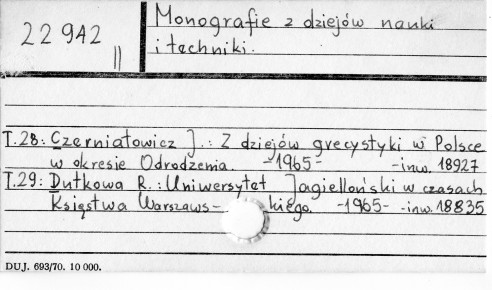 22942
II
Monografie z dziejów nauki
i techniki.
T.28: Czerniatowicz J.: Z dziejów grecystyki w Polsce
w okresie Odrodzenia. -1965- -inw. 18927
T.29: Dutkowa R.: Uniwersytet Jagielloński w czasach
Księstwa Warszaws- kiego. -1965- -inw. 18835
DUJ. 693/70. 10 000.